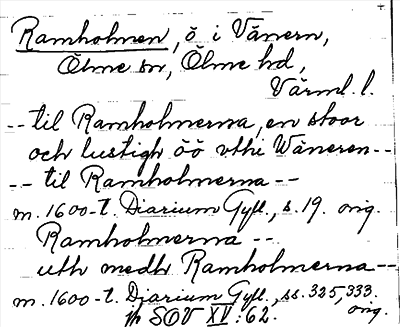 Ramholmen, ö i Vänern,
Ölme sn, Ölme hd,
Värml. l.
-- til Ramholmerna, en stoor
och lustigh öö vthi Wäneren --
-- til Ramholmerna --
m. 1600-t. Diarium Gyll., s. 19. orig.
Ramholmerna --
uth medh Ramholmerna --
m. 1600-t. Diarium Gyll., ss. 325, 333.
orig.
SOV XV : 62.